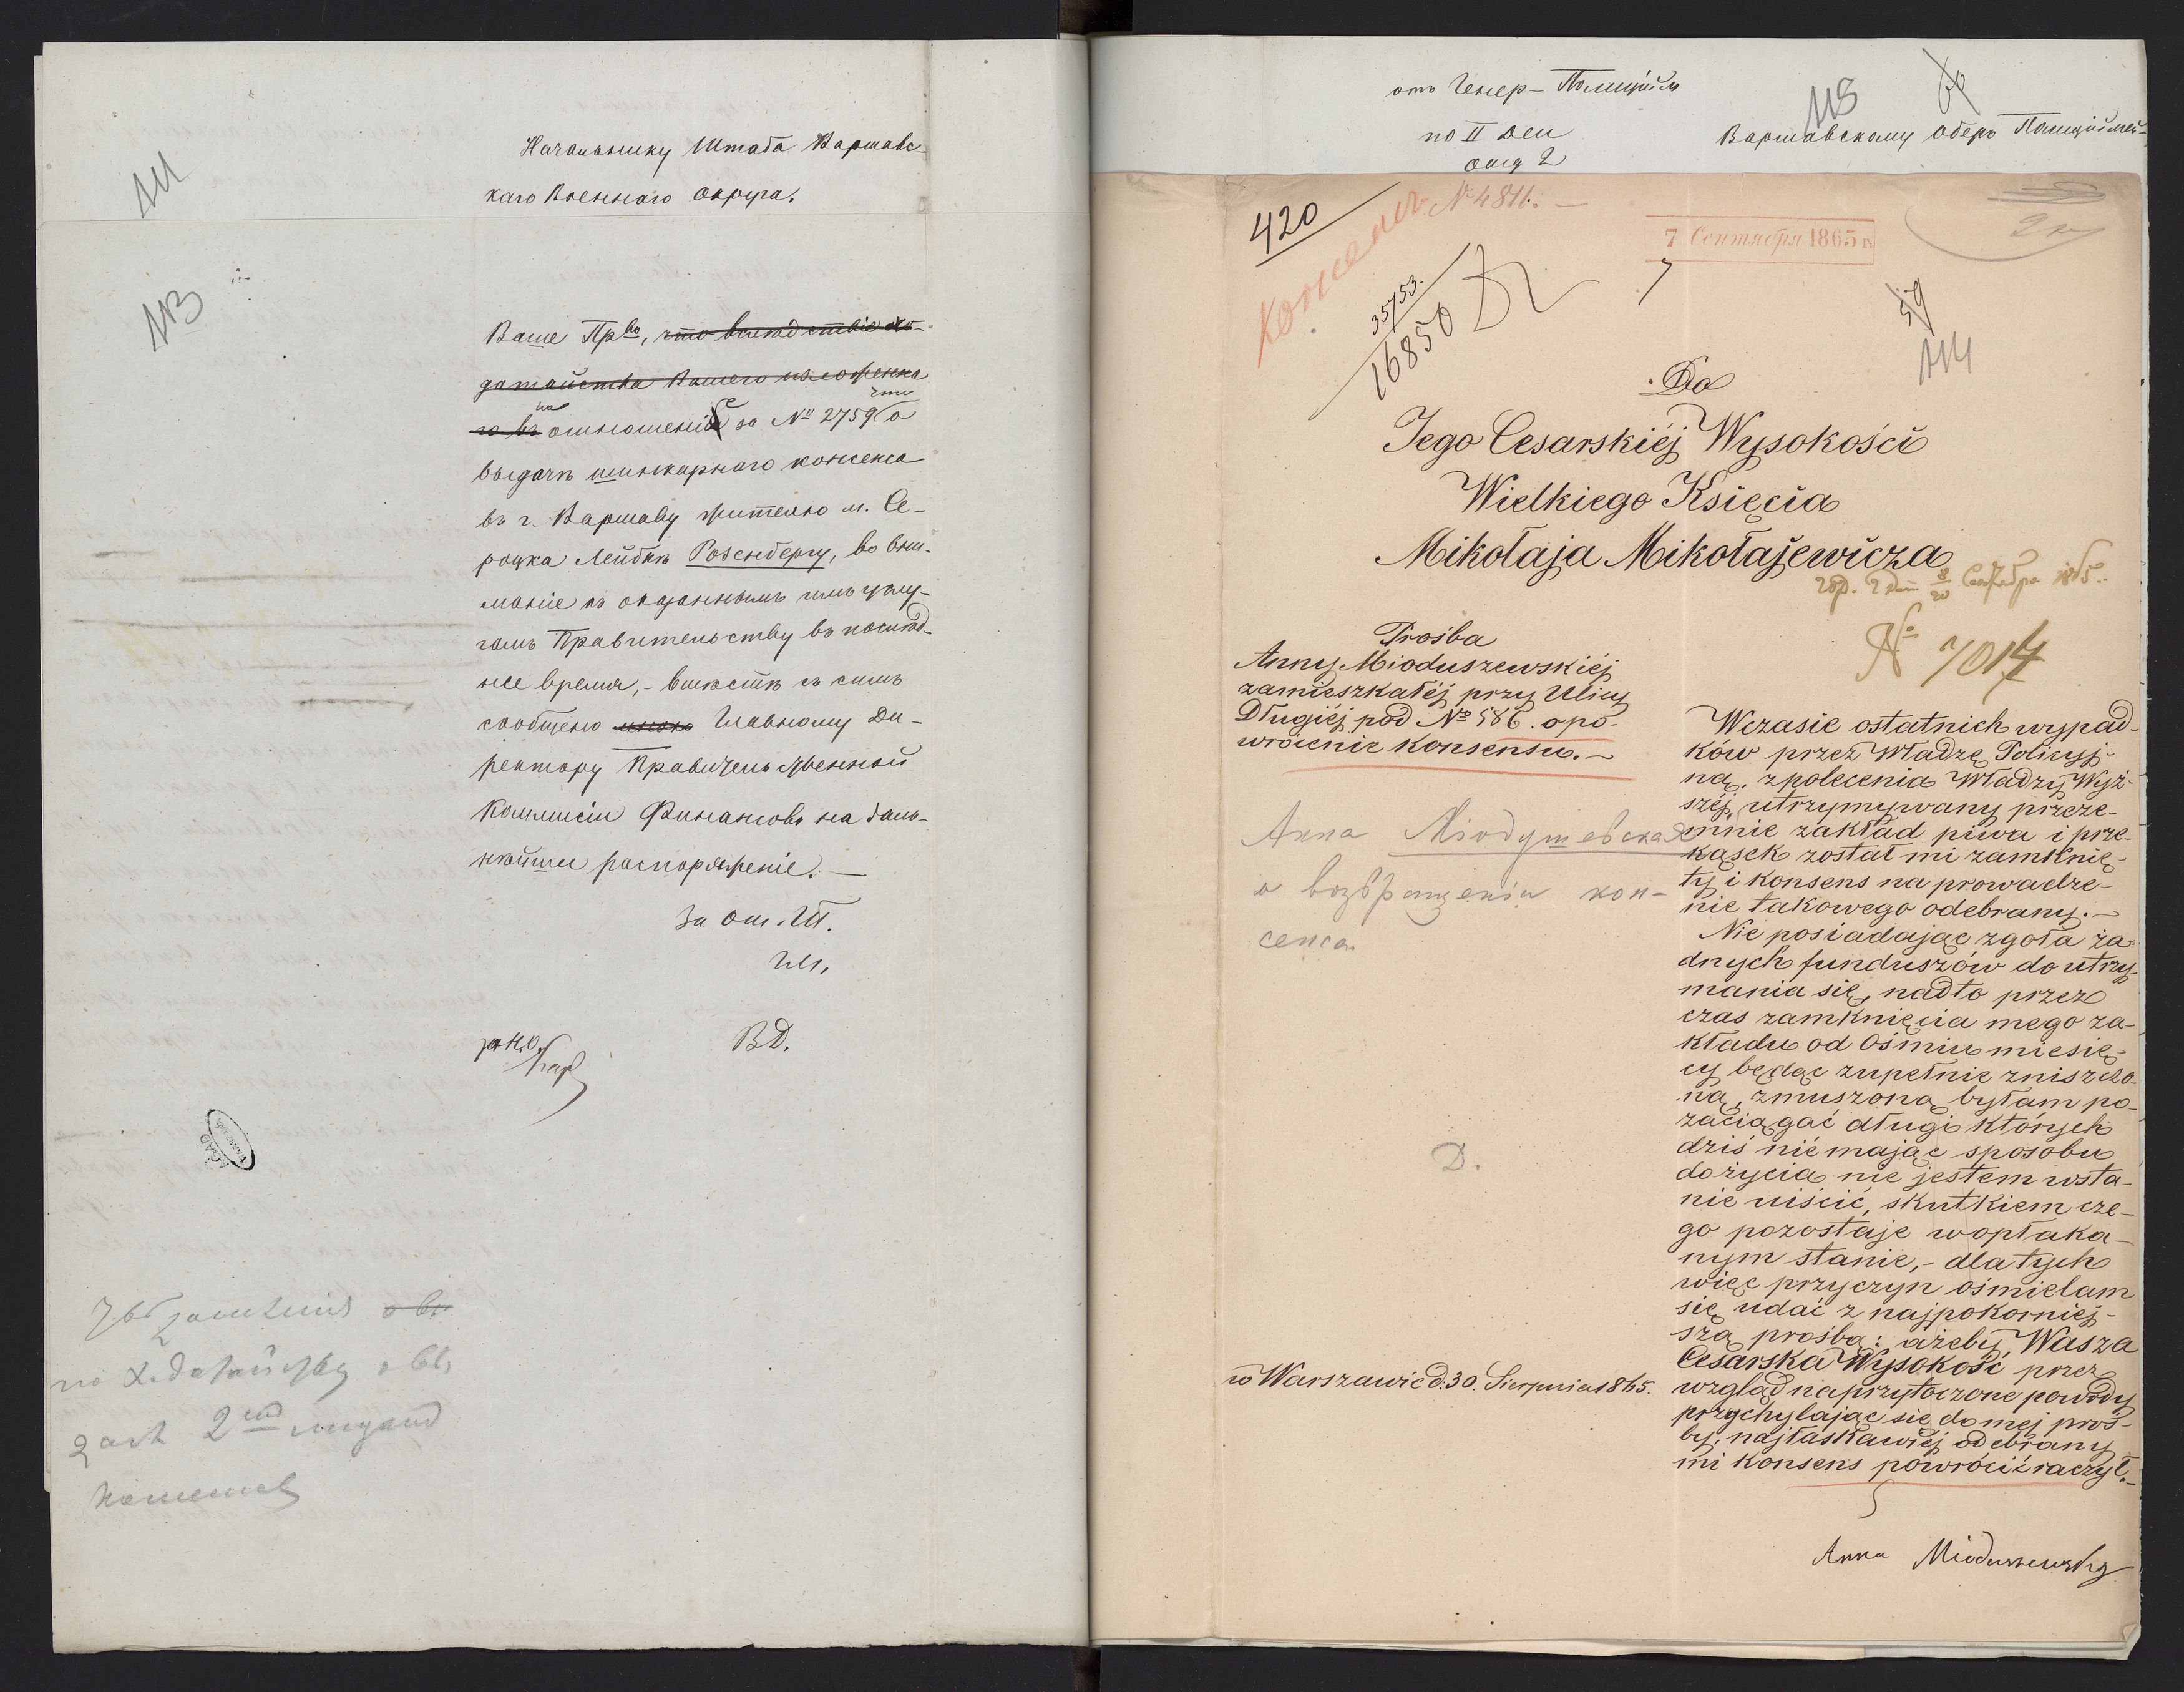 111
Начальнику Штаба Варшавс-
каго Военнаго Округа.
113
Ваше Пр-во, что вслѣдствіе хо-
датайства Вашего изложенна
что
го въ на отношеніе за № 2759 о
выдачѣ шинкарнаго консенса
въ г. Варшаву жителю м. Се-
роцка Лейбѣ Розенбергу, во вни-
маніе къ оказаннымъ имъ услу-
гамъ Правительству въ послѣд-
нее время, - вмѣстѣ съ симъ
сообщено мною Главному Ди-
ректору Правительственной
Коммисіи Финансовъ на даль-
нѣйшее распоряженіе. —
За
В.Д.
отъ Генер-Полиційм
по II Дел
отд 2
Варшавскому Оберъ Полиціймей-
115
60
420
Консенсъ № 4811. —
7 Сентября 1865 г.
35753.
16850
59
114
Do
Jego Cesarskiéj Wysokości
Wielkiego Księcia
Mikołaja Mikołajewicza
8/20 Сентября 1865.
№ 7014
Prośba
Anny Mioduszewskiéj
zamieszkałéj przy Ulicy
Długiéj pod № 586. o po-
wrócenie Konsensu. —
Анна Міодушевская
о возвращеніи кон-
сенса.
D.
w Warszawie d. 30. Sierpnia 1865.
Wczasie ostatnich wypad-
ków przez Władzę Policyj-
ną, z polecenia Władzy Wyż-
széj, utrzymywany przeze-
mnie zakład piwa i prze-
kąsek został mi zamknię-
ty i konsens na prowadze-
nie takowego odebrany. —
Nie posiadając zgoła ża-
dnych funduszów do utrzy-
mania się, nadto przez
czas zamknięcia mego za-
kładu od Ośmiu miesię-
cy będąc zupełnie zniszczo-
ną, zmuszoną byłam po-
zaciągać długi których
dziś nie mając sposobu
do życia nie jestem wsta-
nie uiścić, skutkiem cze-
go pozostaję w opłaka-
nym stanie, - dla tych
więc przyczyn ośmielam
się udać z najpokorniéj-
szą prośbą: ażeby Wasza
Cesarska Wysokość, przez
wzgląd na przytoczone powody
przychylając się do mej proś-
by, najłaskawiéj odebrany
mi Konsens powrócić raczył. —
Anna Mioduszewska